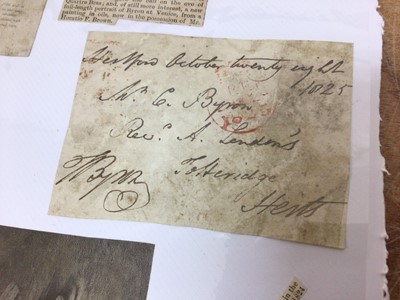 Quatres Bras; and, of still more interest, a new
full-length portrait of Byron at Venice, from a
painting in oils, now in the possession of Mr.
Horatio F. Brown.
October twenty eight
1825
Mr. C. Byron
Revd. A.
Totteridge
Herts
Byron